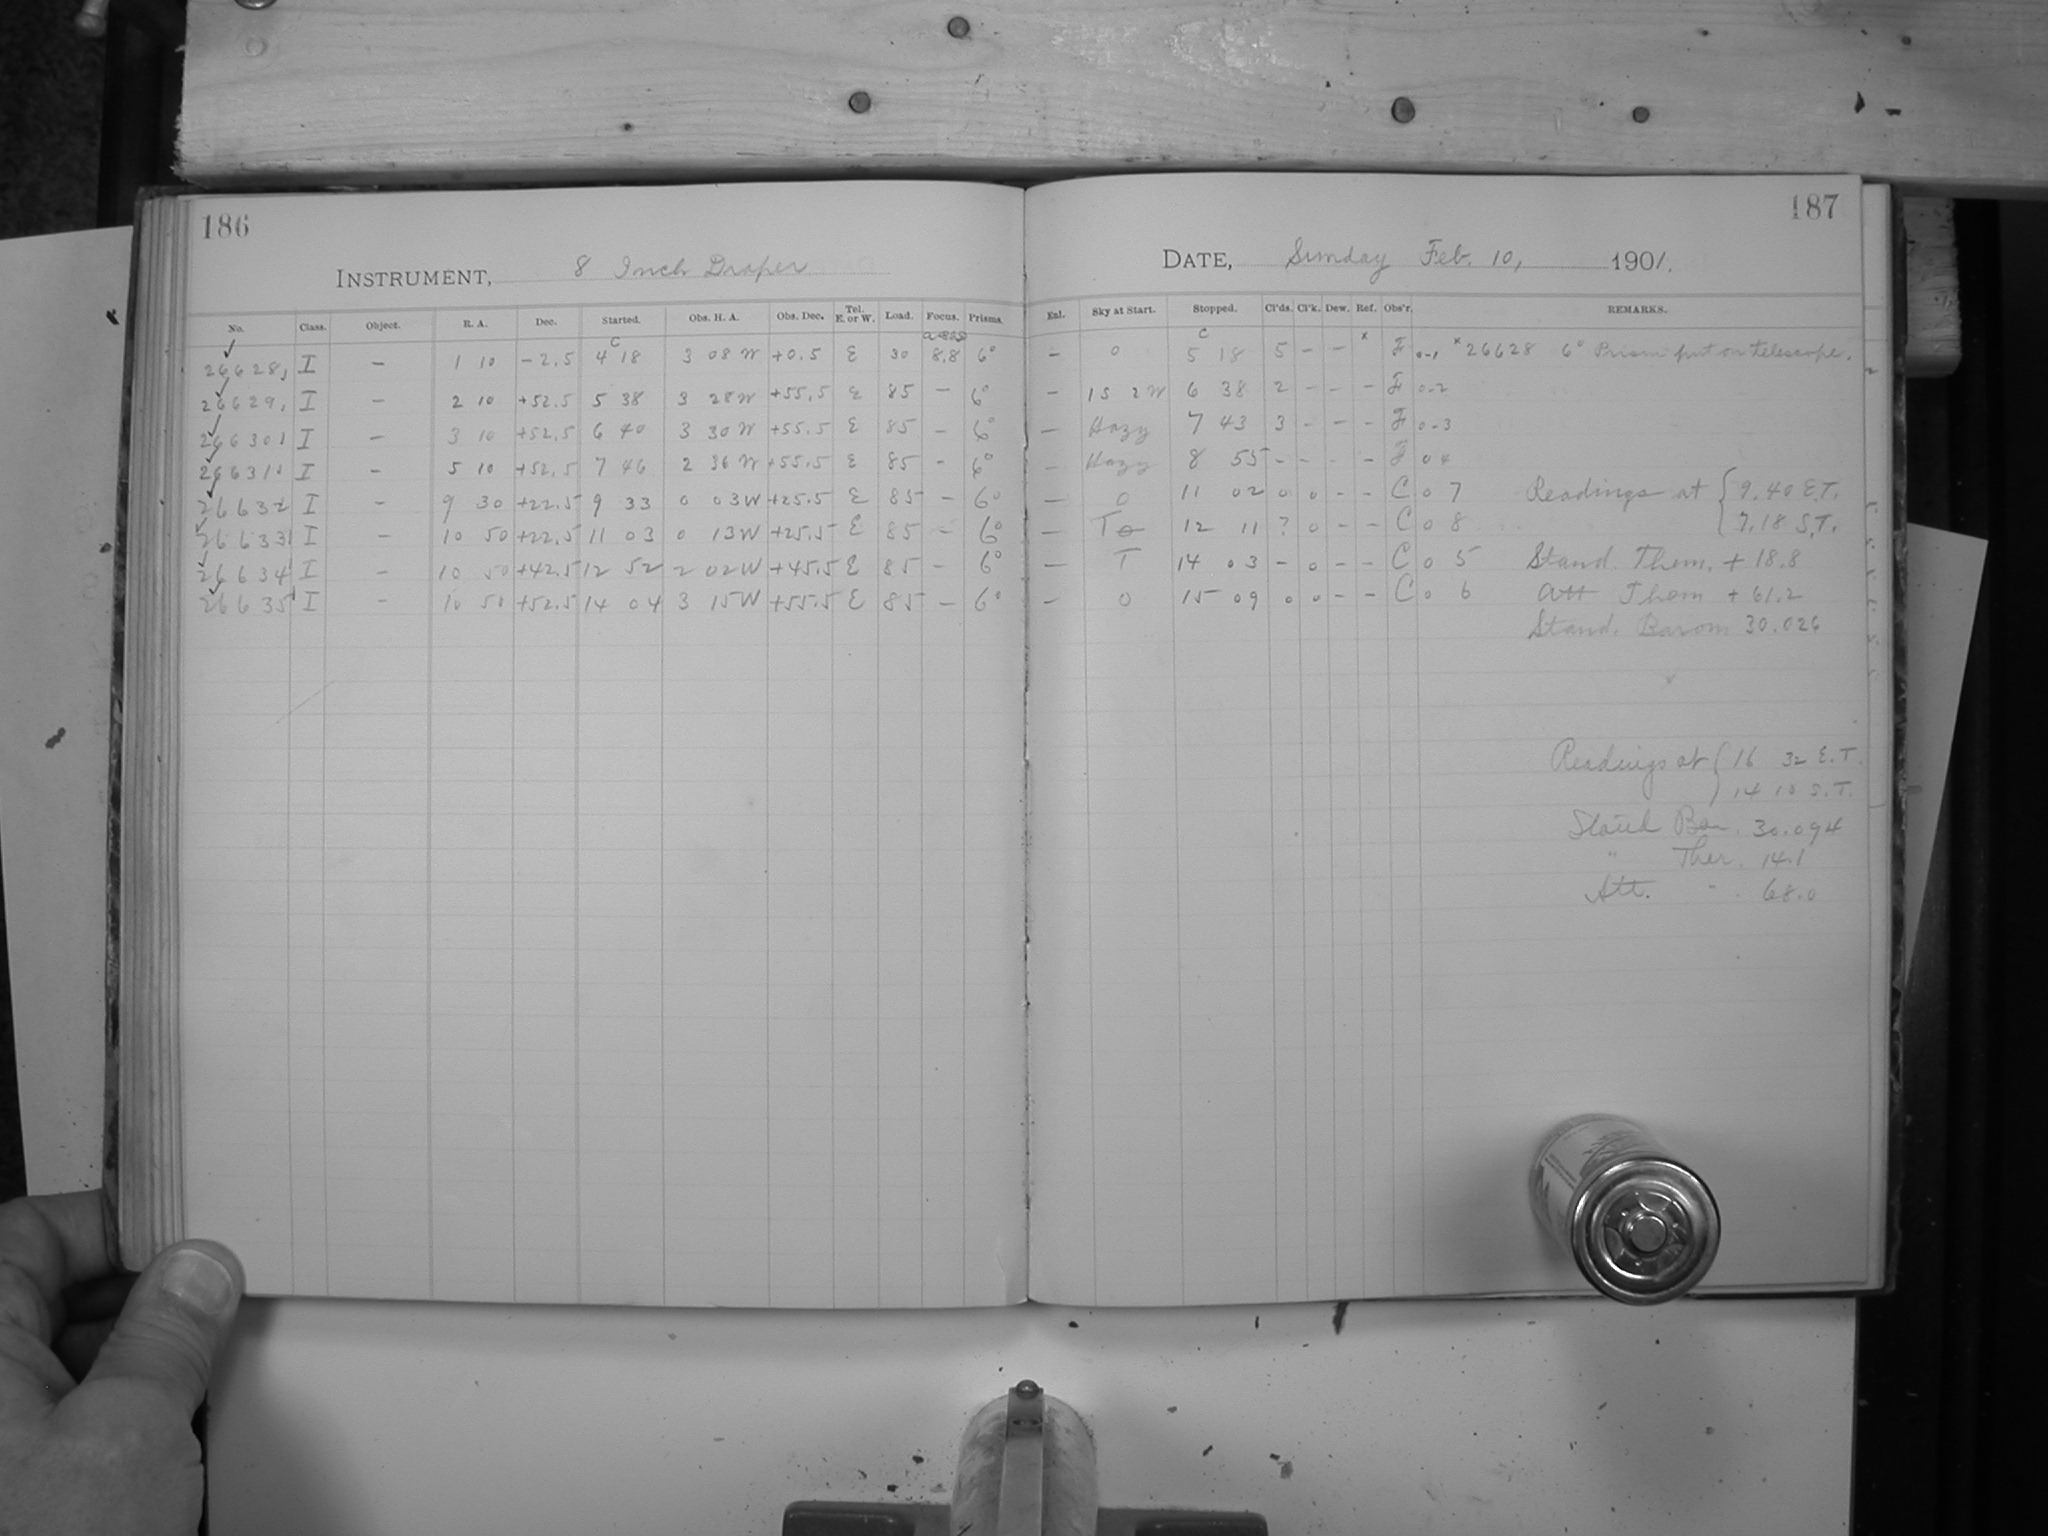 186
INSTRUMENT, 8 Inch Draper
No. Class. Object. R. A. Dec. Started. Obs. H. A. Obs. Dec. Tel. E. or W. Load. Focus. Prisms.
26628 I – 1 10 –2.5 4 18 3 08 W +0.5 E 30 8.8 6°
26629 I – 2 10 +52.5 5 38 3 28 W +55.5 E 85 – 6°
26630 I – 3 10 +52.5 6 40 3 30 W +55.5 E 85 – 6°
26631 I – 5 10 +52.5 7 46 2 36 W +55.5 E 85 – 6°
26632 I – 9 30 +22.5 9 33 0 03 W +25.5 E 85 – 6°
26633 I – 10 50 +22.5 11 03 0 13 W +25.5 E 85 – 6°
26634 I – 10 50 +42.5 12 52 2 02 W +45.5 E 85 – 6°
26635 I – 10 50 +52.5 14 04 3 15 W +55.5 E 85 – 6°
187
DATE, Sunday Feb. 10, 1901.
Enl. Sky at Start. Stopped. Cl'ds. Cl'k. Dew. Ref. Obs'r. REMARKS.
– 0 5 18 5 – – x F 0-1 x 26628 6° Prism put on telescope.
– 1S 2W 6 38 2 – – – F 0-2
– Hazy 7 43 3 – – – F 0-3
– Hazy 8 55 – – – – F 0 4
– 0 11 02 0 0 – – C 0 7 Readings at { 9.40 E.T.
– T 12 11 ? 0 – – C 0 8 7.18 S.T.
– T 14 03 – 0 – – C 0 5 Stand. Them. + 18.8
– 0 15 09 0 0 – – C 0 6 Att Them + 61.2
Stand. Barom 30.026
Readings at { 16 32 E.T.
14 10 S.T.
Stand Bar. 30.094
" Ther. 14.1
Att. " 68.0